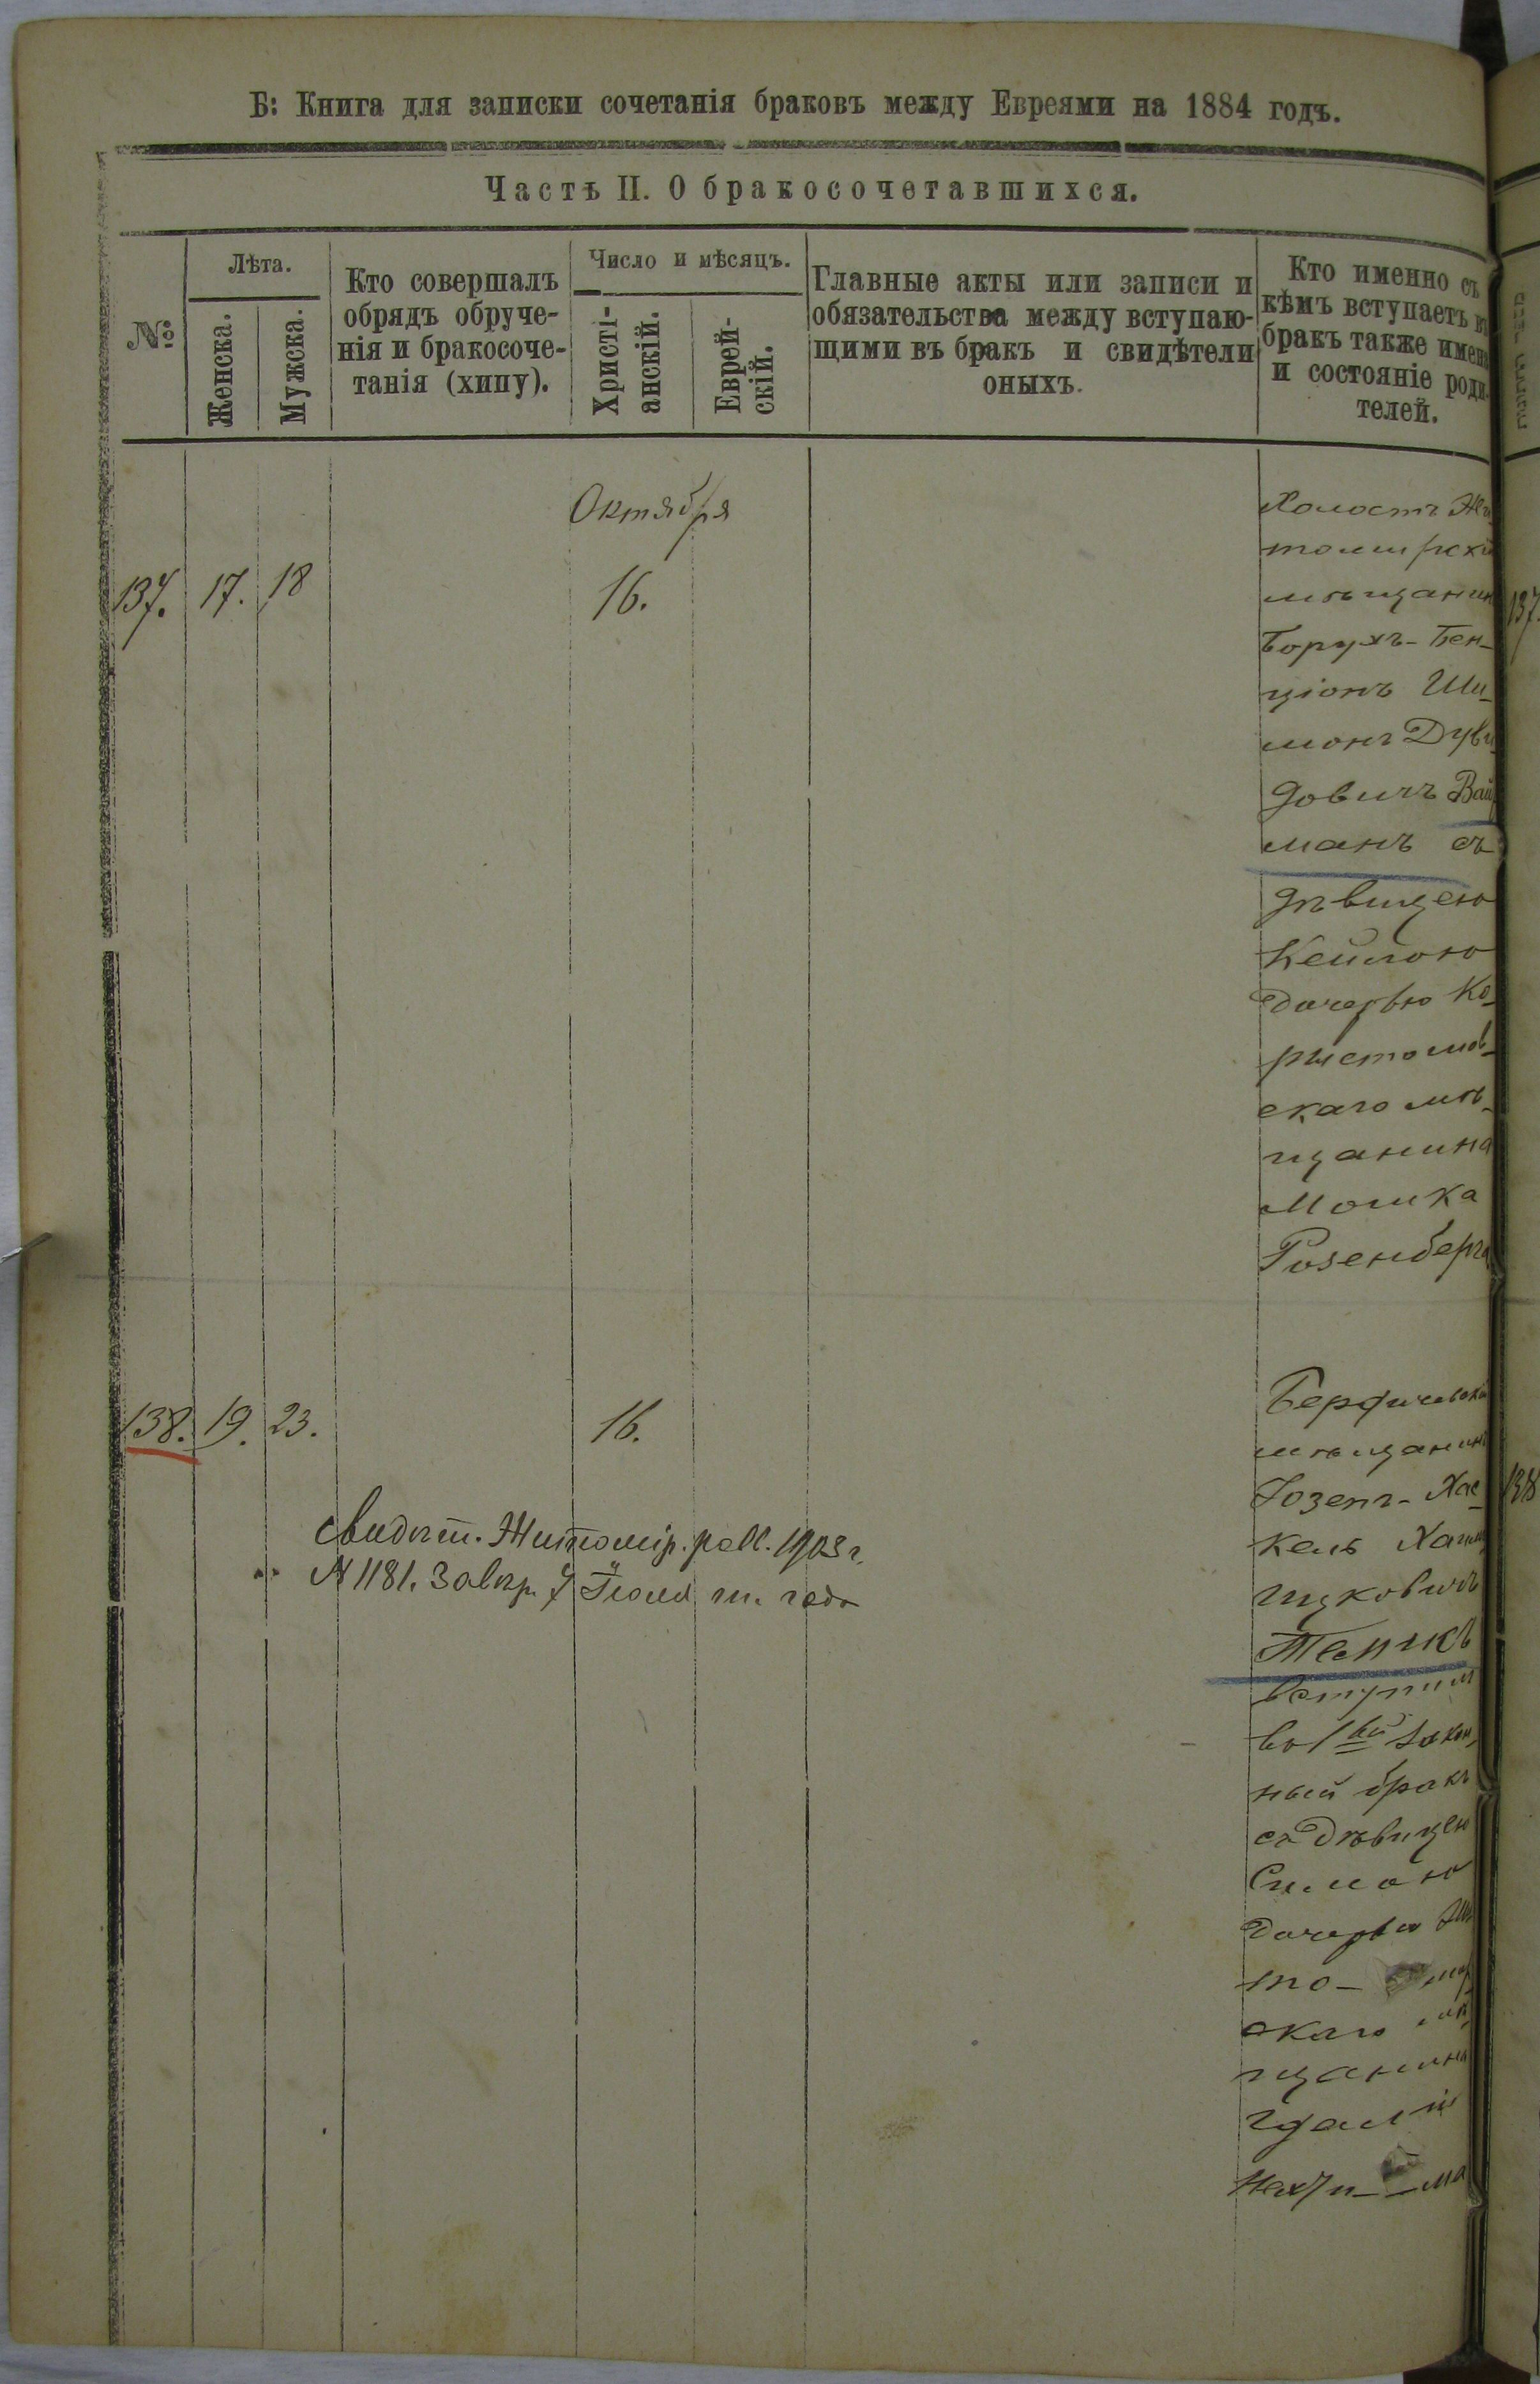 Б: Книга для записки сочетанія браковъ между Евреями на 1884 годъ.
Часть II. О бракосочетавшихся.
№:
Лѣта.
Женска.
Мужска.
Кто совершалъ
обрядъ обруче-
нія и бракосоче-
танія (хипу).
Число и мѣсяцъ.
Христі-
анскій.
Еврей-
скій.
Главные акты или записи и
обязательства между вступаю-
щими въ бракъ и свидѣтели
оныхъ.
Кто именно съ
кѣмъ вступаетъ въ
бракъ также имена
и состояніе роди-
телей.
Октября
137. 17. 18 16.
Холостъ Жи
томирскій
мѣщанин
Борухъ-Бен-
ціонъ Ши-
монъ Дуви
довичъ Вай
манъ съ
дѣвицею
Кейлою
дочерью Ко-
ростышев-
скаго мѣ-
щанина
Мошка
Розенберга
137.
138. 19. 23. 16.
Свидѣт. Житомір. 1903 г.
N 1181. Завѣр. 7 Іюля т. года
Бердичевскій
мѣщанинъ
Іозепъ-Хас-
кель
цковичъ
вступил
во 1вый закон
ный бракъ
съ дѣвицею
Симою
дочерью Жи
то- мир
скаго мѣ
щанина
Гдаліи
ма
138